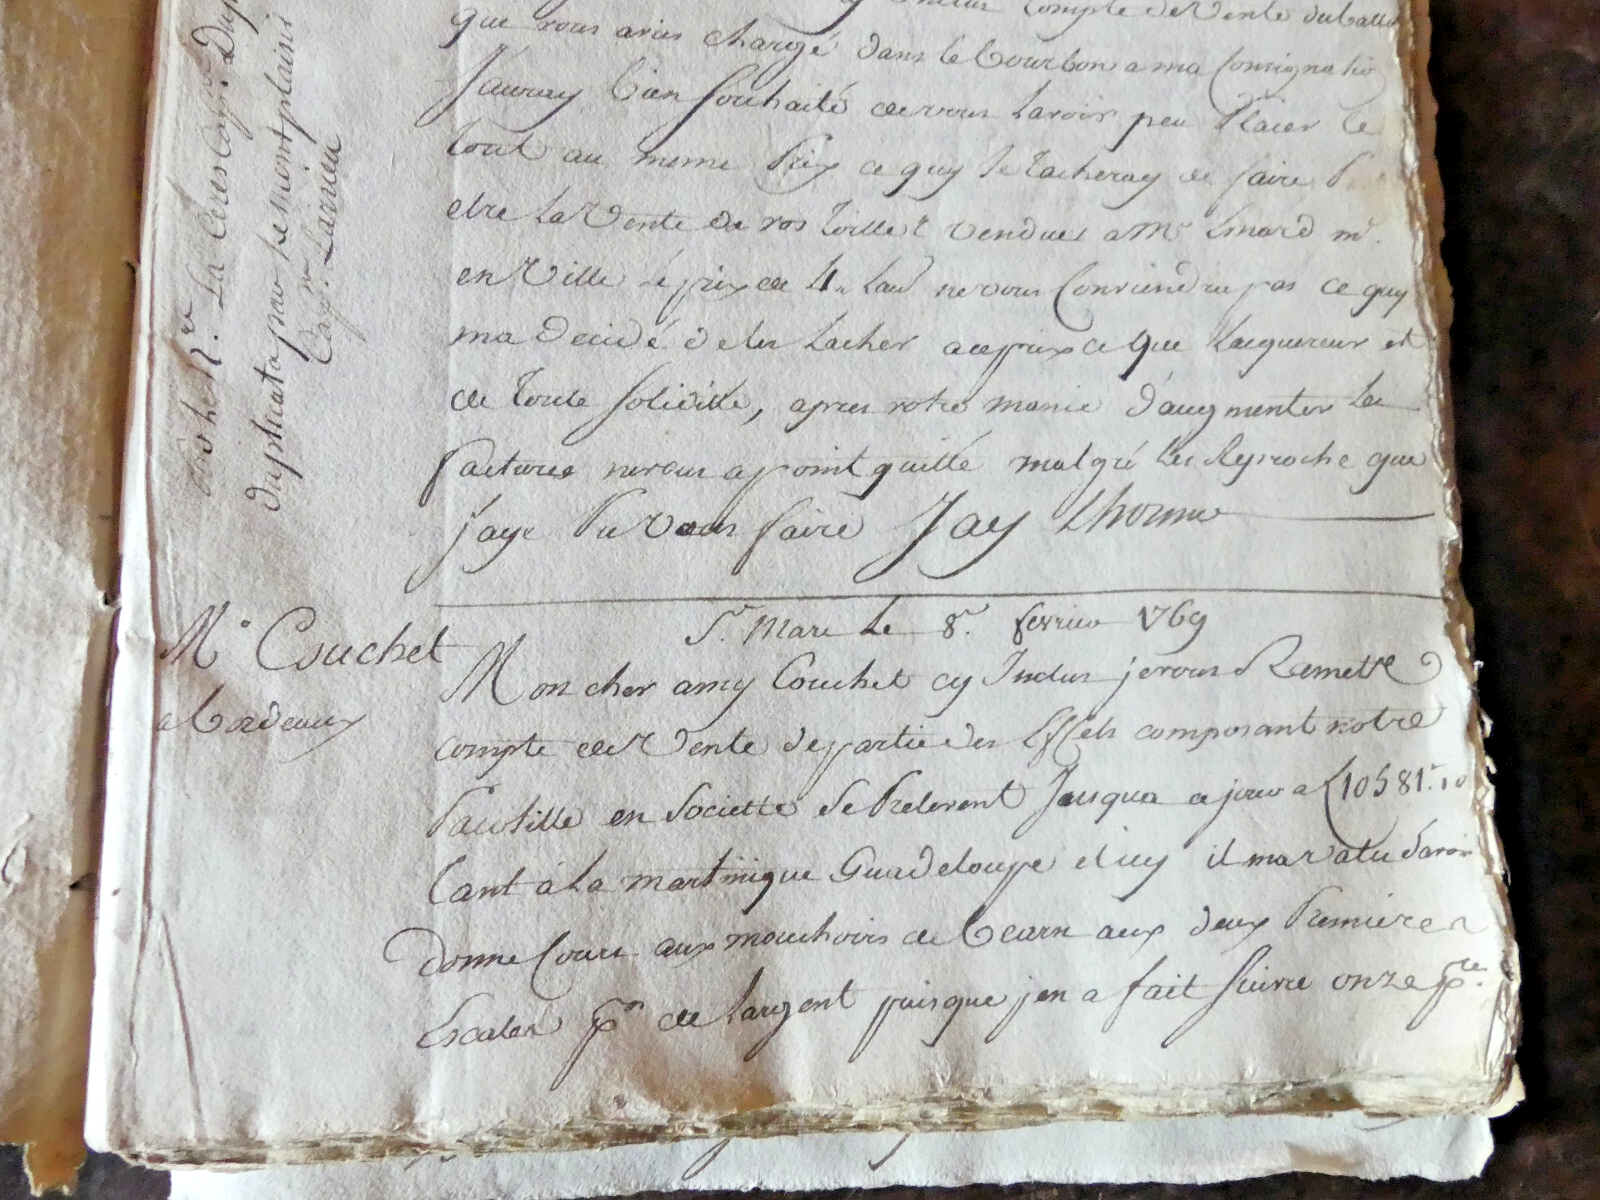 Compte de Vente du Ballot
que vous aviés chargé dans le Bourbon a ma Consignatio
Jauray bien souhaité de vous lavoir peu Placer le
tout au meme Prix ce quy Je tacheray de faire
etre La Vente de vos toilles vendues a Mr Linard md.
en Ville le prix de 4tt Laud ne vous Conviendra pas ce quy
ma decidé de les Lacher a ce prix ce que Lacquereur et
de toute soliditté, apres votre manie d'augmenter les
factures ne vous a point quitté malgré les Reproche que
Jaye Pu vous faire Jay Lhonneur
St. Marc Le 8r. fevrier 1769
Mr Couchet
a Bordeaux
Mon cher amy Couchet cy Inclus je vous Remette
compte de Vente de partie des Effets composant notre
Pacotille en Societte se Prelevent Jusqua ce jour a L 10581.10
tant à La martinique Guadeloupe et icy il ma valu d'avoir
donne Cours aux mouchoirs de Bearn aux deux Premieres
Escales pr de Largent puisque jen a fait suivre onze ps.
duplicata par Le Montplaisir
Cap.ne Larrieu